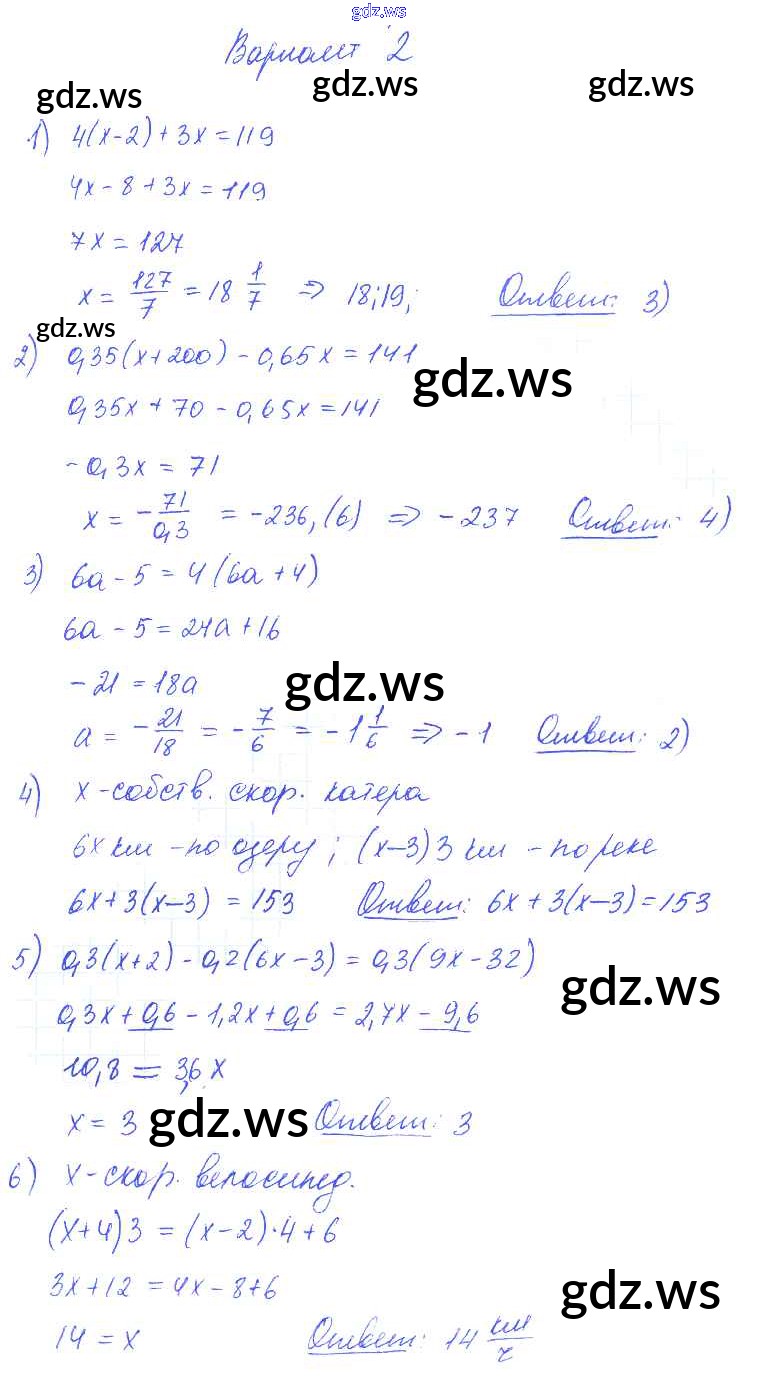 gdz.ws
Вариант 2
gdz.ws gdz.ws gdz.ws
1) 4(x-2)+3x=119
4x-8+3x=119
7x=127
x= 127/7 = 18 1/7 ⇒ 18;19; Ответ: 3)
gdz.ws
2) 0,35(x+200)-0,65x=141
gdz.ws
0,35x+70-0,65x=141
-0,3x=71
x= -71/0,3 = -236,(6) ⇒ -237 Ответ: 4)
3) 6a-5=4(6a+4)
6a-5=24a+16
-21=18a
gdz.ws
a= -21/18 = -7/6 = -1 1/6 ⇒ -1 Ответ: 2)
4) x-собств. скор. катера
6x км -по озеру; (x-3)3 км -по реке
6x+3(x-3)=153 Ответ: 6x+3(x-3)=153
5) 0,3(x+2)-0,2(6x-3)=0,3(9x-32)
gdz.ws
0,3x+0,6-1,2x+0,6=2,7x-9,6
10,8=3,6x
x=3 gdz.ws Ответ: 3
6) x-скор. велосипед.
(x+4)3=(x-2)·4+6
3x+12=4x-8+6
gdz.ws
14=x Ответ: 14 км/ч